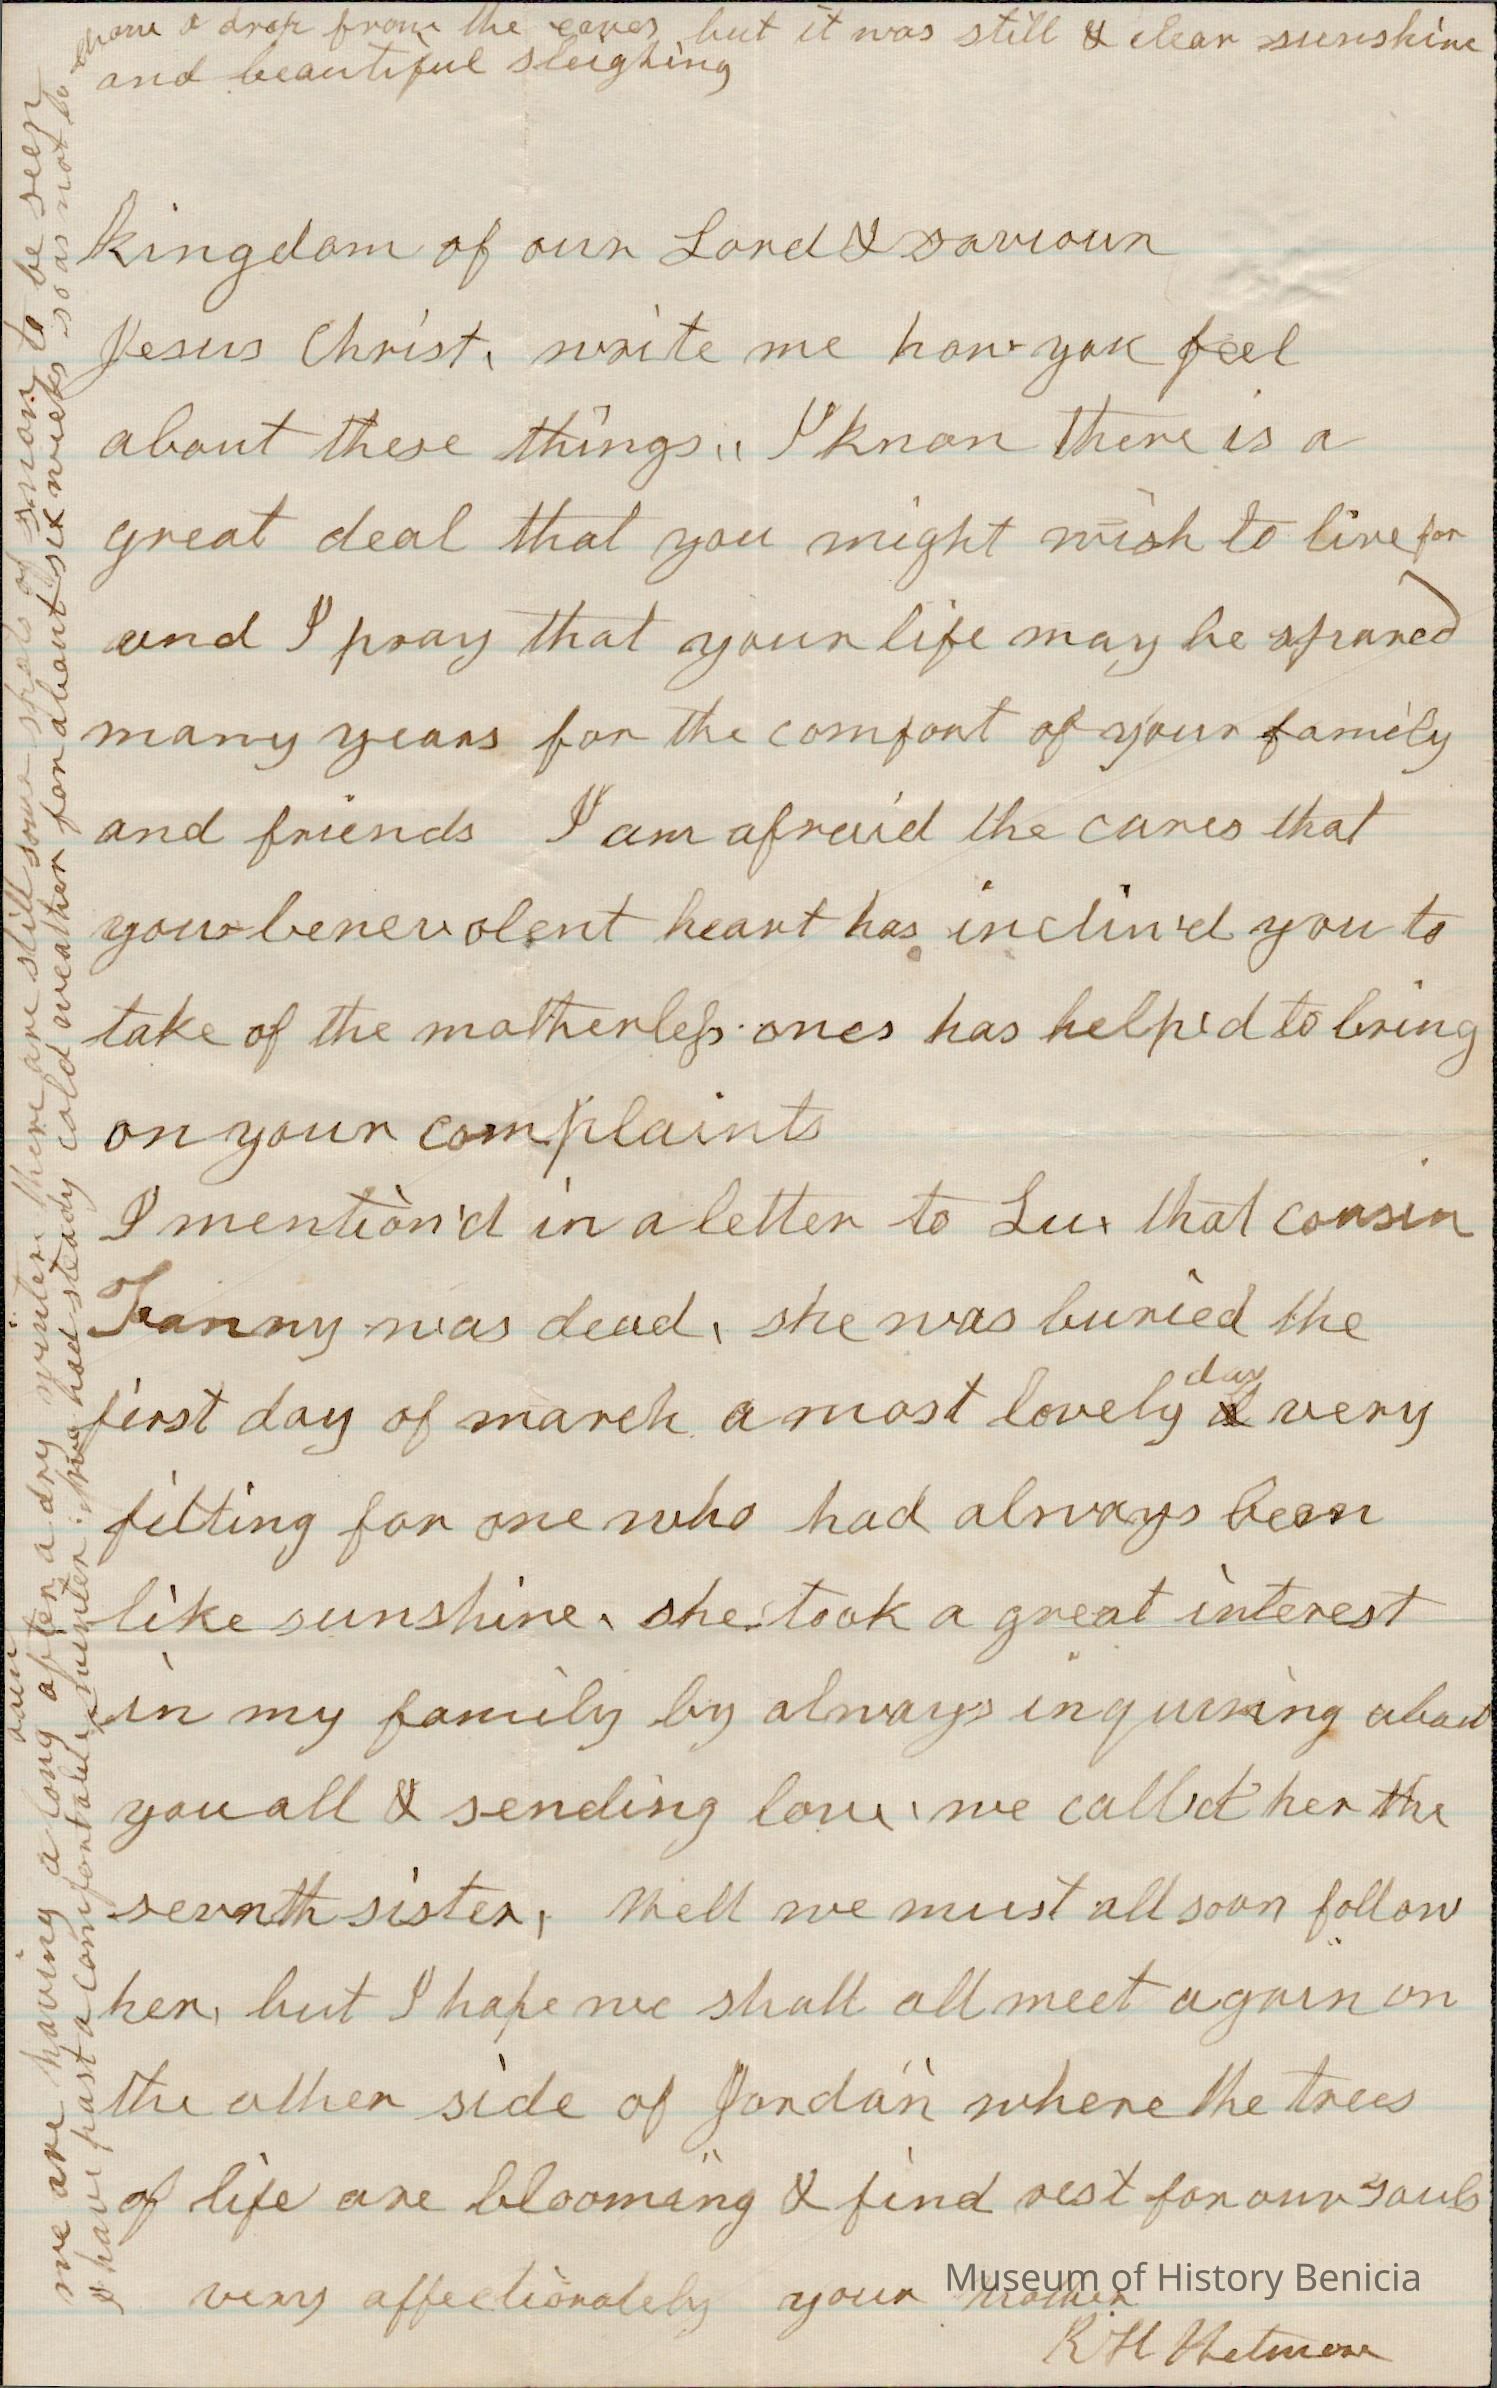 kingdom of our Lord & saviour
Jesus Christ, write me how you feel
about these things,, I know there is a
great deal that you might wish to live for
and I pray that your life may be spared
many years for the comfort of your family
and friends I am afraid the cares that
your benevolent heart has inclin'd you to
take of the motherless ones has help'd to bring
on your complaints
I mention'd in a letter to Lu, that cousin
Fanny was dead, she was buried the
first day of march a most lovely day & very
fitting for one who had always been
like sunshine, she took a great interest
in my family by always inquiring about
you all & sending love, we call'd her the
seventh sister, Well we must all soon follow
her, but I hope we shall all meet again on
the other side of Jordan where the trees
of life are blooming & find rest for our souls
very affectionately your mother
R H Wetmore
we are having a long rain after a dry winter there are still some spots of snow to be seen
& have past a comfortable winter, we had steady cold weather for about six weeks so as not to
a drop from the eaves but it was still & clear sunshine
and beautiful sleighing
Museum of History Benicia